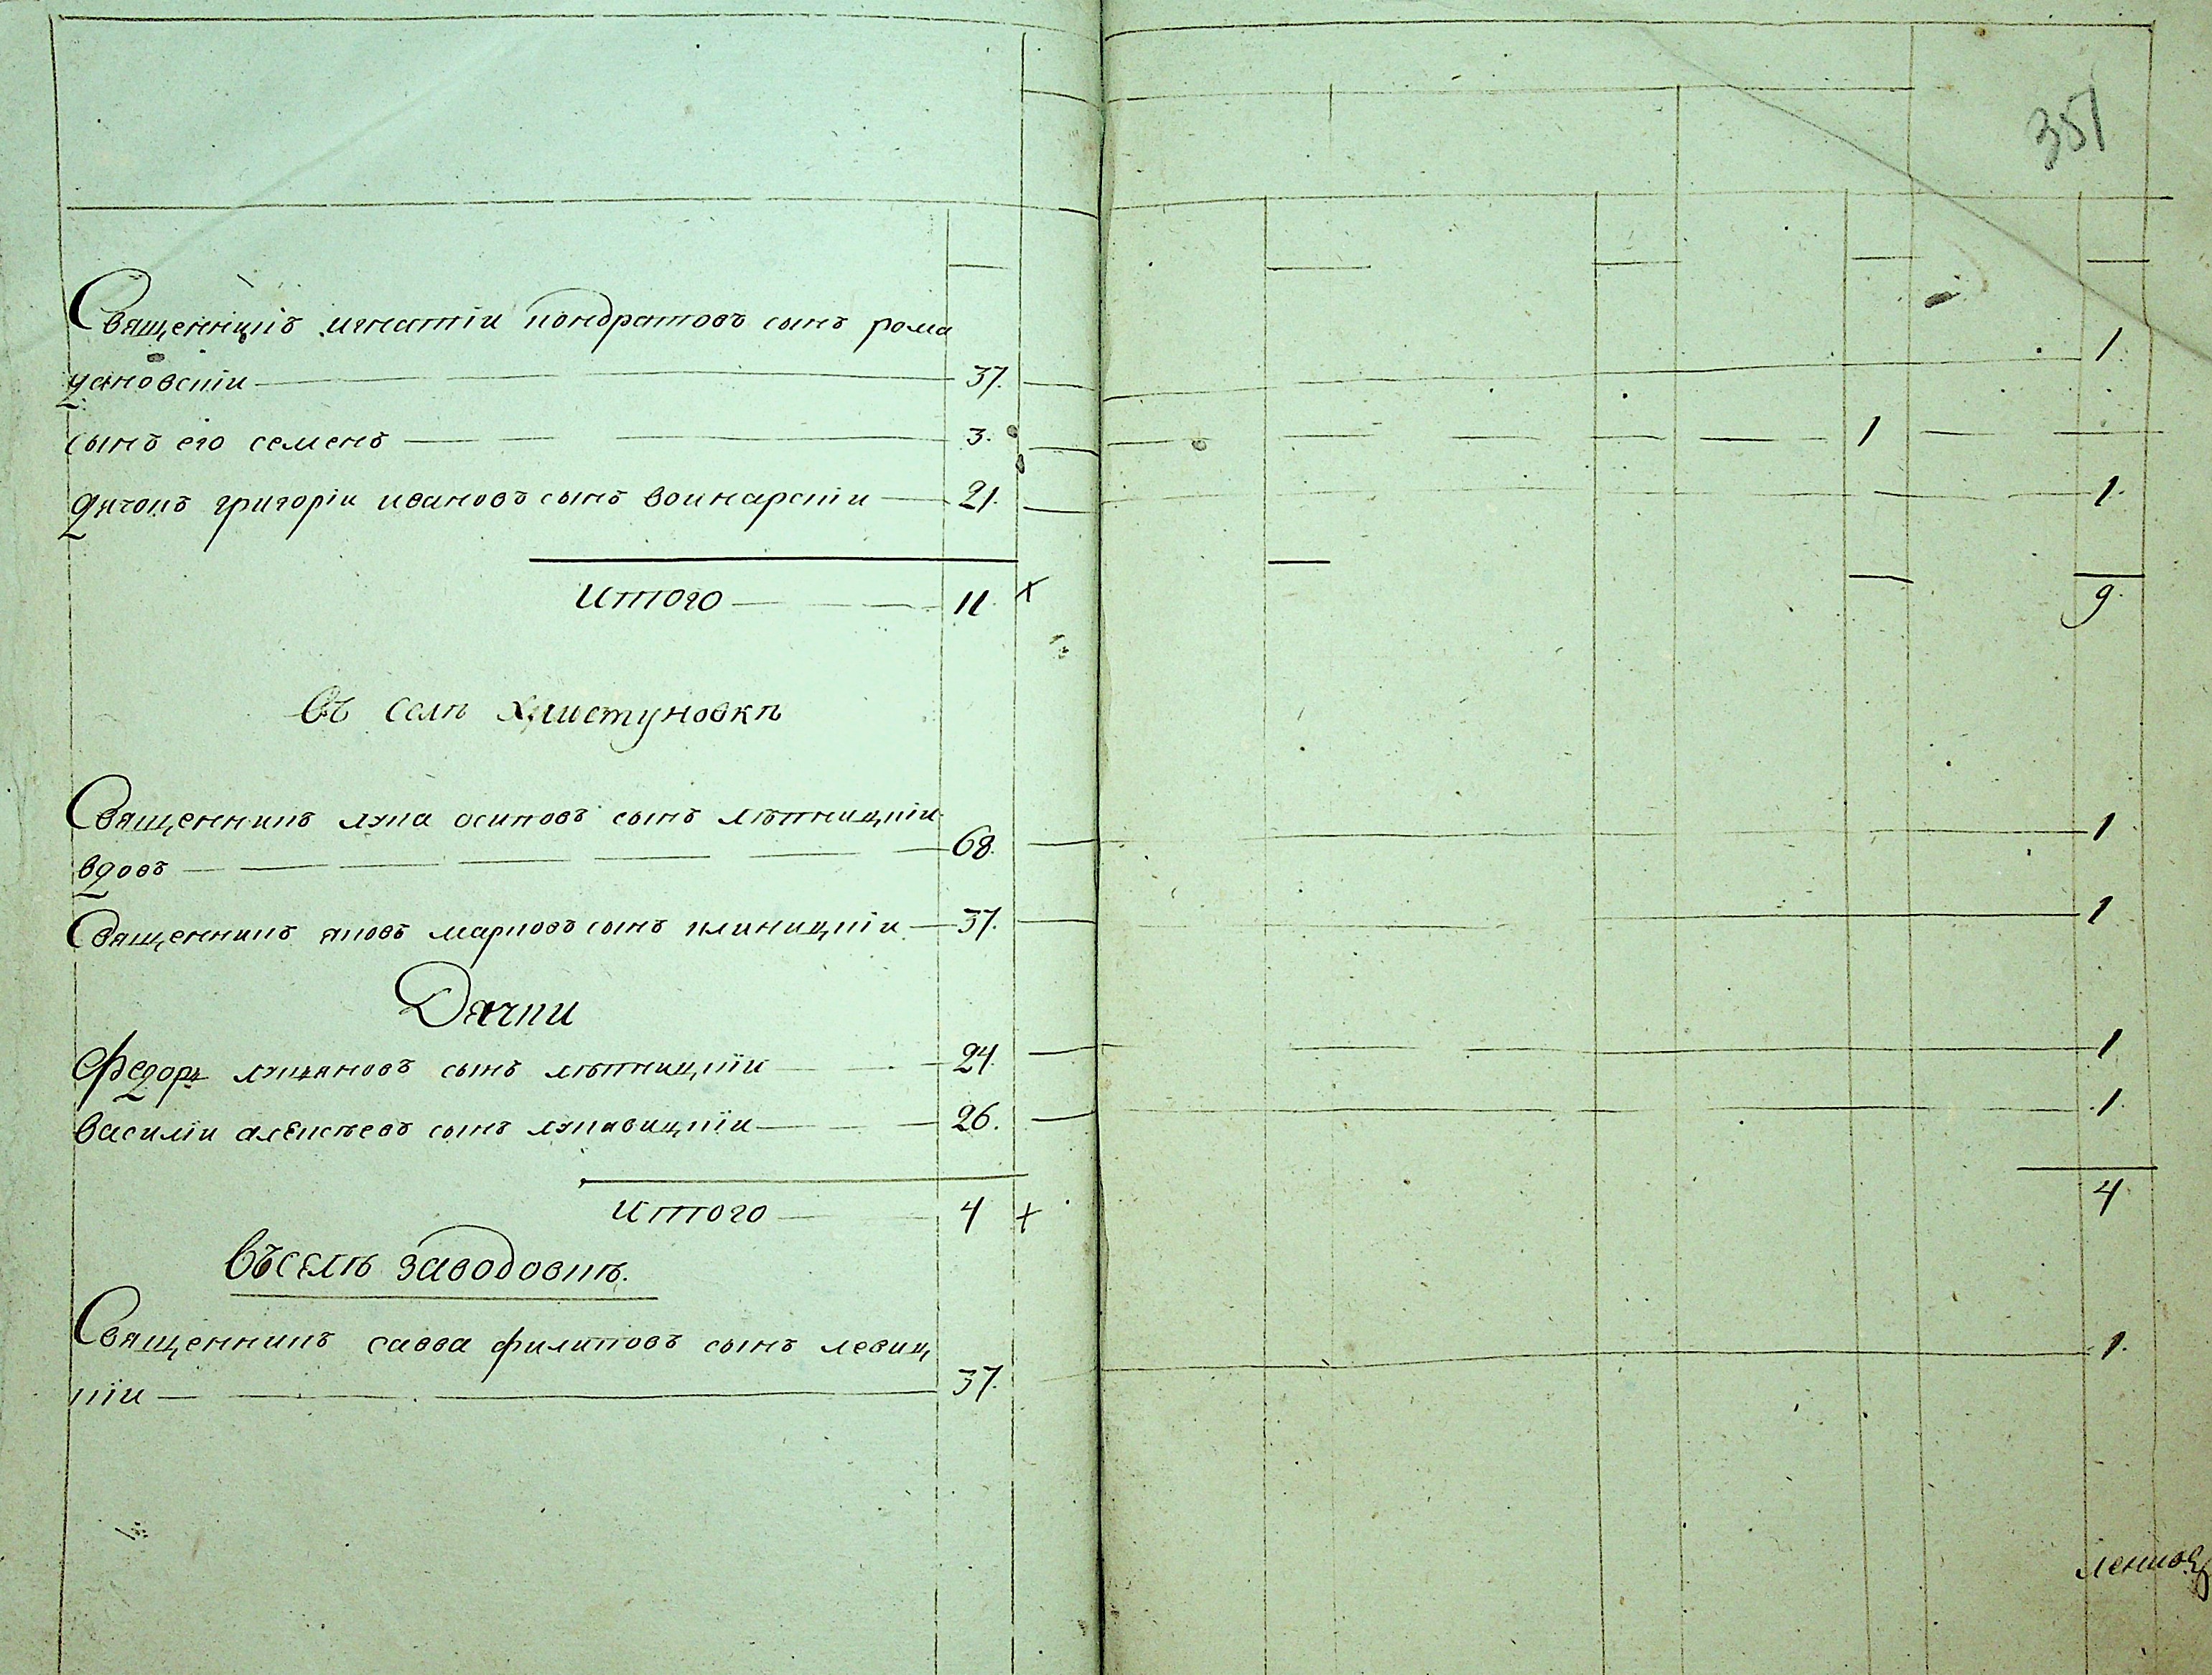 351
Священникъ игнатіи кондратовъ сынъ рома
дановскіи 37. 1.
сынъ его семенъ 3. 1
дячокъ григоріи ивановъ сынъ воинарскіи 21. 1.
Итого 11. х 9.
въ селѣ Христуновкѣ
Священникъ лука осиповъ сынъ лѣпницкіи
вдовъ 68. 1
Священникъ яковъ марковъ сынъклиницкіи 37. 1
Дячки
Федоръ лукяновъ сынъ лѣпницкїи 24. 1
василіи алексѣевъ сынъ лукавицкїи 26. 1.
Итого 4 х 4
въселѣ заводовкѣ.
Священникъ савва филиповъ сынъ левиц
кїи 37. 1.